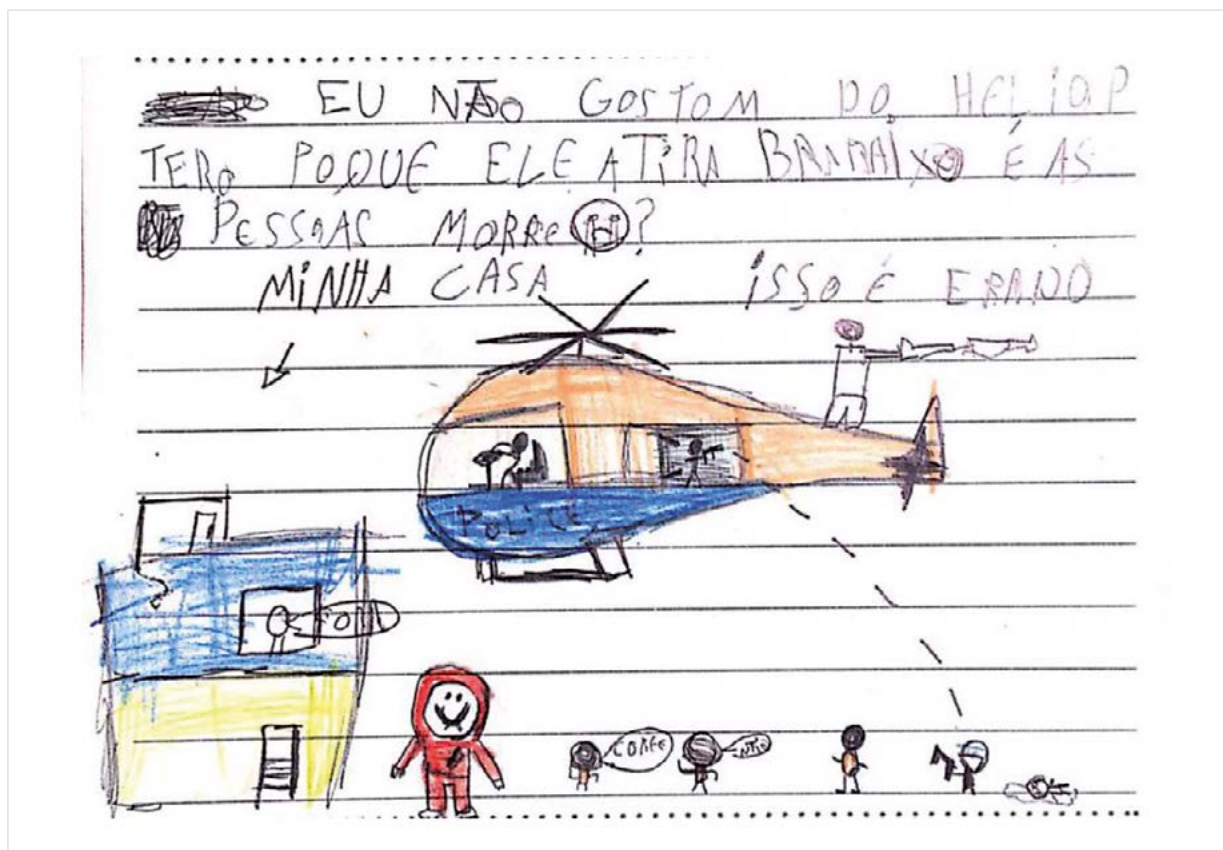 EU NÃO GOSTOM DO HELIOP
TERO POQUE ELE ATIRA BAIXO É AS
PESSOAS MORRE ?
MINHA CASA
ISSO É ERADO
POLICE
CORRE
NÃO